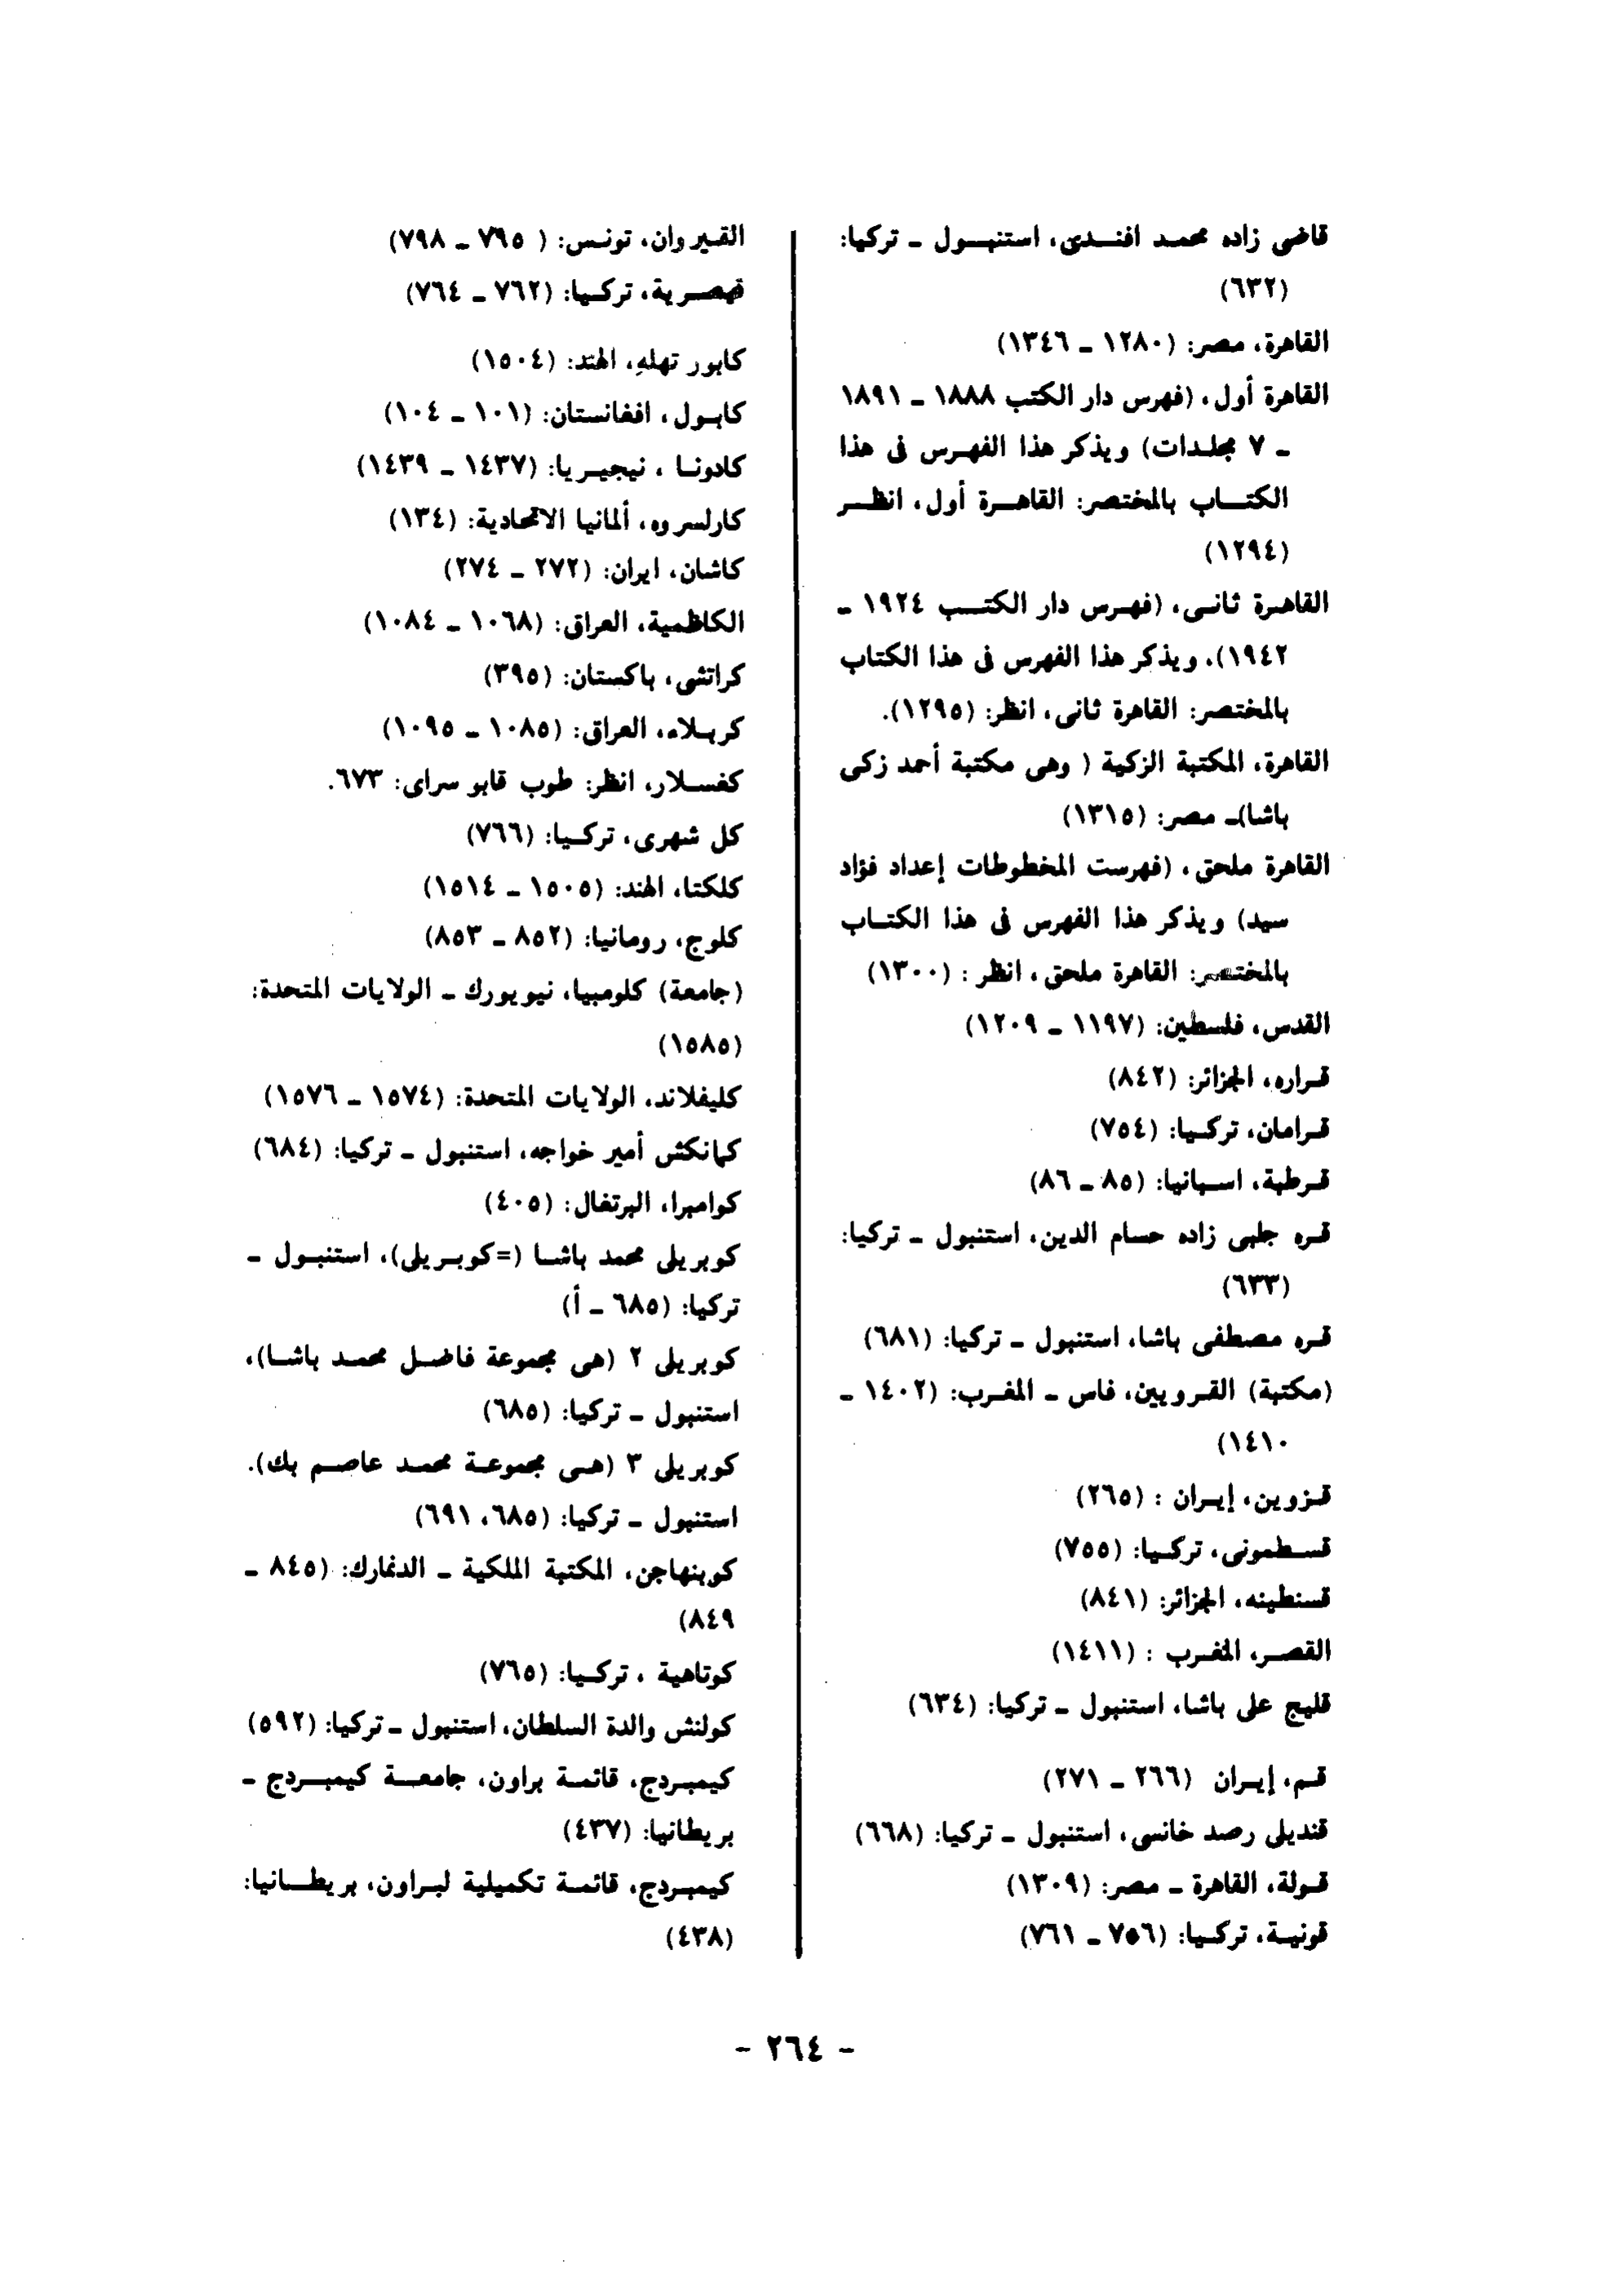 قاضى زاده محمد افندى، استنبول ـ تركيا:
(٦٣٢)
القاهرة، مصر: (١٢٨٠ ـ ١٣٤٦)
القاهرة أول، (فهرس دار الكتب ١٨٨٨ ـ ١٨٩١
ـ ٧ مجلدات) ويذكر هذا الفهرس فى هذا
الكتاب بالمختصر: القاهرة أول، انظر
(١٢٩٤)
القاهرة ثانى، (فهرس دار الكتب ١٩٢٤ ـ
١٩٤٢). ويذكر هذا الفهرس فى هذا الكتاب
بالمختصر: القاهرة ثانى، انظر: (١٢٩٥).
القاهرة، المكتبة الزكية ( وهى مكتبة أحمد زكى
باشا)ـ مصر: (١٣١٥)
القاهرة ملحق، (فهرست المخطوطات إعداد فؤاد
سيد) ويذكر هذا الفهرس فى هذا الكتاب
بالمختصر: القاهرة ملحق، انظر : (١٣٠٠)
القدس، فلسطين: (١١٩٧ ـ ١٢٠٩)
قراره، الجزائر: (٨٤٢)
قرامان، تركيا: (٧٥٤)
قرطبة، اسبانيا: (٨٥ ـ ٨٦)
قره جلبى زاده حسام الدين، استنبول ـ تركيا:
(٦٣٣)
قره مصطفى باشا، استنبول ـ تركيا: (٦٨١)
(مكتبة) القرويين، فاس ـ المغرب: (١٤٠٢ ـ
١٤١٠)
قزوين، إيران : (٢٦٥)
قسطمونى، تركيا: (٧٥٥)
قسنطينه، الجزائر: (٨٤١)
القصر، المغرب : (١٤١١)
قليج على باشا، استنبول ـ تركيا: (٦٣٤)
قم، إيران (٢٦٦ ـ ٢٧١)
قنديلى رصد خانسى، استنبول ـ تركيا: (٦٦٨)
قولة، القاهرة ـ مصر: (١٣٠٩)
قونية، تركيا: (٧٥٦ ـ ٧٦١)
القيروان، تونس: ( ٧٦٥ ـ ٧٩٨)
قيصرية، تركيا: (٧٦٢ ـ ٧٦٤)
كابور تهله، الهند: (١٥٠٤)
كابول، افغانستان: (١٠١ ـ ١٠٤)
كادونا ، نيجيريا: (١٤٣٧ ـ ١٤٣٩)
كارلسروه، ألمانيا الاتحادية: (١٣٤)
كاشان، ايران: (٢٧٢ ـ ٢٧٤)
الكاظمية، العراق: (١٠٦٨ ـ ١٠٨٤)
كراتشى، باكستان: (٣٩٥)
كربلاء، العراق: (١٠٨٥ ـ ١٠٩٥)
كفسلار، انظر: طوب قابو سراى: ٦٧٣.
كل شهرى، تركيا: (٧٦٦)
كلكتا، الهند: (١٥٠٥ ـ ١٥١٤)
كلوج، رومانيا: (٨٥٢ ـ ٨٥٣)
(جامعة) كلومبيا، نيويورك ـ الولايات المتحدة:
(١٥٨٥)
كليفلاند، الولايات المتحدة: (١٥٧٤ ـ ١٥٧٦)
كمانكش أمير خواجه، استنبول ـ تركيا: (٦٨٤)
كوامبرا، البرتغال: (٤٠٥)
كوبريلى محمد باشا (=كوبريلى)، استنبول ـ
تركيا: (٦٨٥ ـ أ)
كوبريلى ٢ (هى مجموعة فاضل محمد باشا)،
استنبول ـ تركيا: (٦٨٥)
كوبريلى ٣ (هى مجموعة محمد عاصم بك).
استنبول ـ تركيا: (٦٨٥، ٦٩١)
كوبنهاجن، المكتبة الملكية ـ الدنمارك: (٨٤٥ ـ
٨٤٩)
كوتاهية ، تركيا: (٧٦٥)
كولنش والدة السلطان، استنبول ـ تركيا: (٥٩٢)
كيمبردج، قائمة براون، جامعة كيمبردج ـ
بريطانيا: (٤٣٧)
كيمبردج، قائمة تكميلية لبراون، بريطانيا:
(٤٣٨)
- ٢٦٤ -